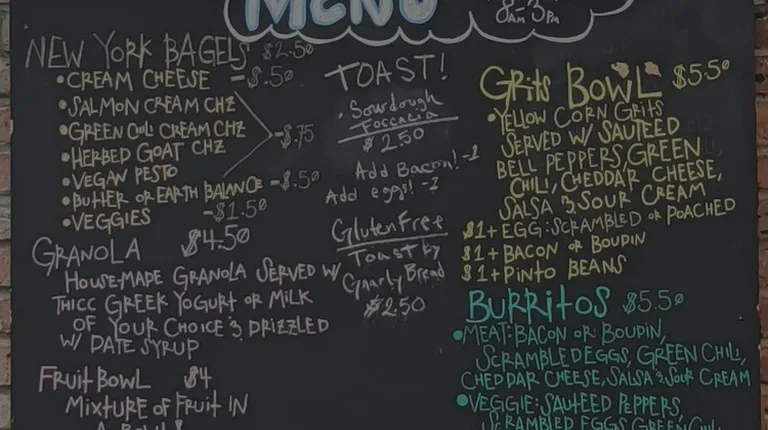 MENU
8AM-3PM
NEW YORK BAGELS $2.50
•CREAM CHEESE -$.50
•SALMON CREAM CHZ
•GREEN CHILI CREAM CHZ -$.75
•HERBED GOAT CHZ
•VEGAN PESTO
•BUTTER OR EARTH BALANCE -$.50
•VEGGIES -$1.50
GRANOLA $4.50
HOUSE-MADE GRANOLA SERVED W/
THICC GREEK YOGURT OR MILK
OF YOUR CHOICE & DRIZZLED
W/ DATE SYRUP
FRUIT BOWL $4
MIXTURE OF FRUIT IN
A BOWL!
TOAST!
•Sourdough
Foccacia
$2.50
Add Bacon! -2
Add eggs! -2
Gluten Free
Toast by
Gnarly Bread
$2.50
GRITS BOWL $5.50
•YELLOW CORN GRITS
SERVED W/ SAUTEED
BELL PEPPERS, GREEN
CHILI, CHEDDAR CHEESE,
SALSA & SOUR CREAM
$1+ EGG: SCRAMBLED OR POACHED
$1+ BACON OR BOUDIN
$1+ PINTO BEANS
BURRITOS $5.50
•MEAT: BACON OR BOUDIN,
SCRAMBLED EGGS, GREEN CHILI,
CHEDDAR CHEESE, SALSA & SOUR CREAM
•VEGGIE: SAUTEED PEPPERS,
SCRAMBLED EGGS GREEN CHILI